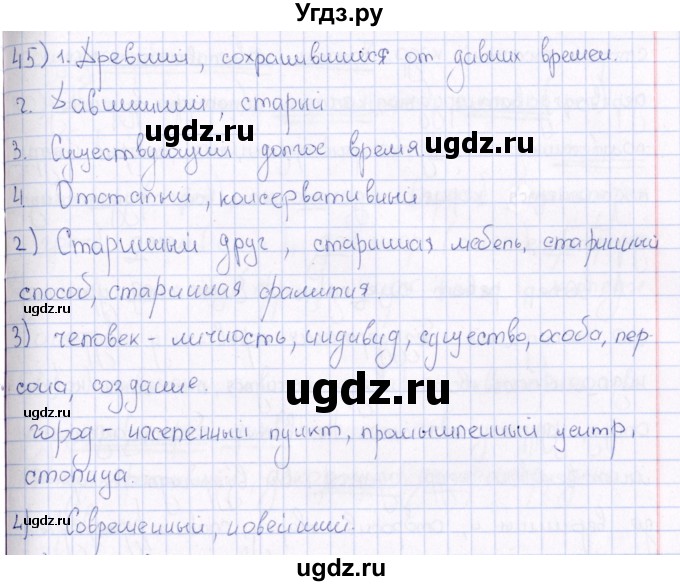 Угдз.ру
45) 1. Древний, сохранившийся от давних времен.
2. Давнишний, старый
ugdz.ru
ugdz.ru
3. Существующий долгое время.
4. Отсталый, консервативный
2) Старинный друг, старинная мебель, старинный
способ, старинная фамилия.
ugdz.ru
3) человек - личность, индивид, существо, особа, пер-
сона, создание.
ugdz.ru
город - населенный пункт, промышленный центр,
столица.
4) Современный, новейший.
ugdz.ru
ugdz.ru